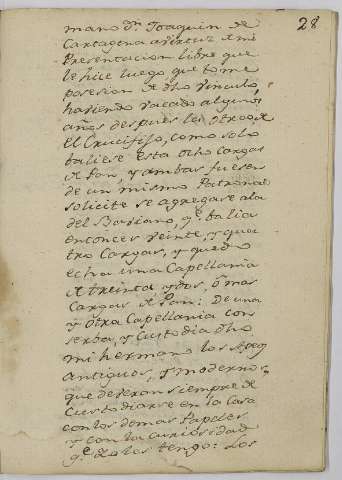 28
mano Dn. Joaquin de
Cartagena a virtud de mi
Presentacion libre que
le hice luego que tome
posesion de dho vinculo,
haviendo vacado algunos
años despues la otra de
el Crucifijo, como solo
baliese esta ocho Cargas
de Pan, y ambas fuesen
de un mismo Patronato
solicite se agregase a la
del Bariano, qe. balia
entonces veinte, y qua
tro Cargas, y quedo
echa una Capellania
de treinta y dos, o mas
Cargas de Pan: De una
y otra Capellania con
serba, y Custodia dho
mi hermano los Apeos
Antiguos, y modernos,
que deveran siempre de
Custodiarse en la Casa
con los demas Papeles
y con la curiosidad
qe. Yo los tengo: Los